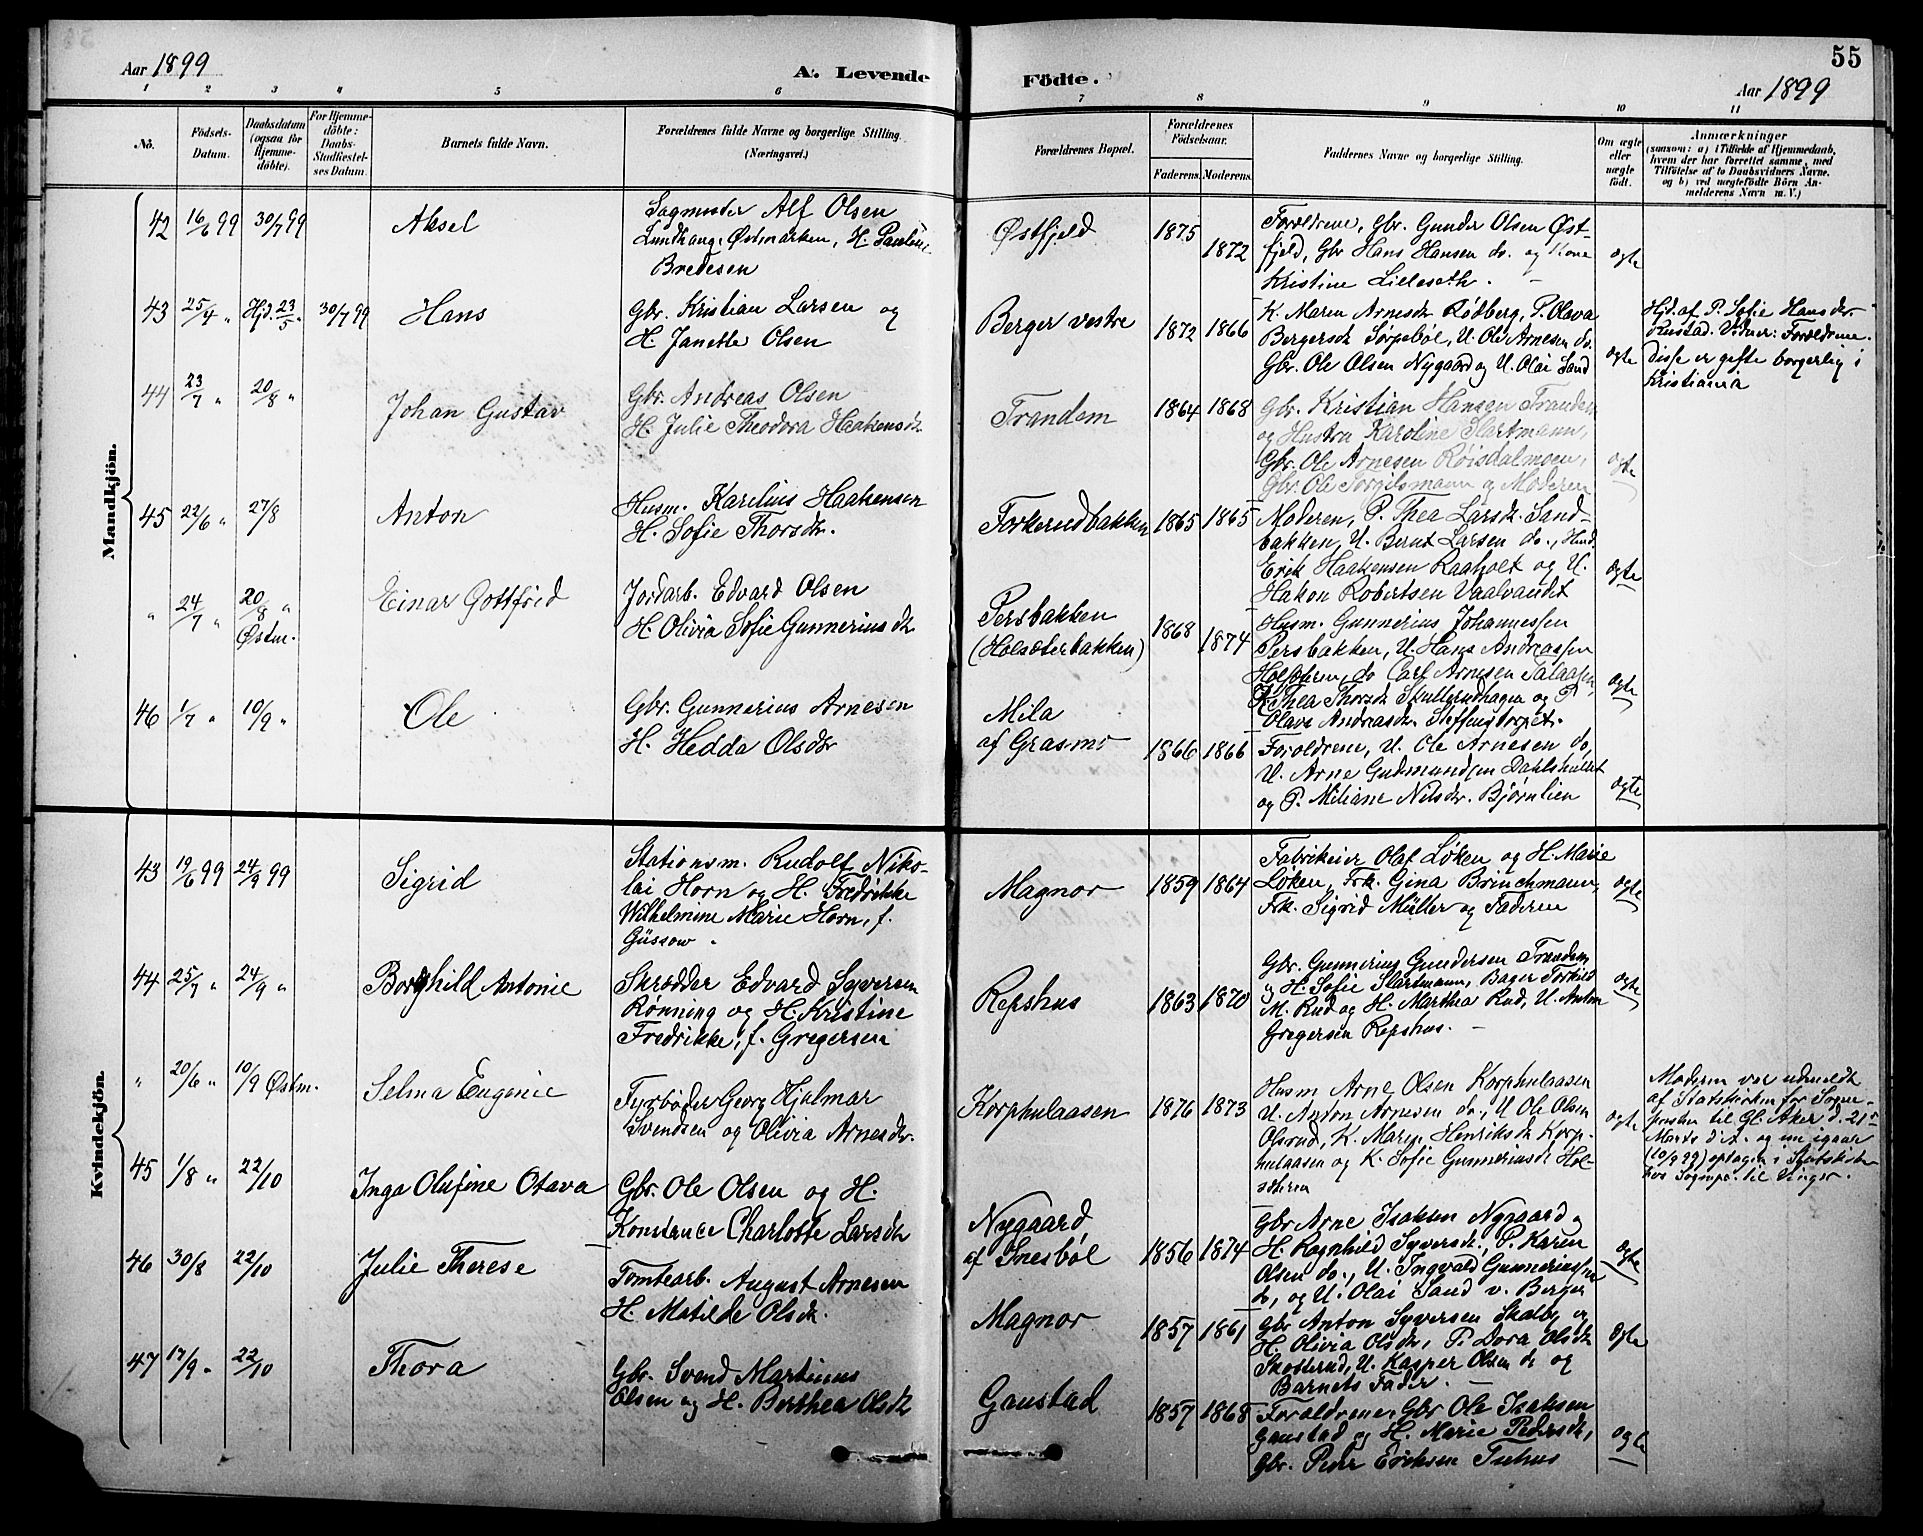 Aar 1899
A. Levende
Födte.
55
Aar 1899
1 2 3 4 5 6 7 8 9 10 11
No.
Födsels-
Datum.
Daabsdatum
(ogsaa for
Hjemme-
döbte).
For Hjemme-
döbte:
Daabs-
Stadfæstel-
ses Datum.
Barnets fulde Navn.
Forældrenes fulde Navne og borgerlige Stilling.
(Næringsvei.)
Forældrenes Bopæl.
Forældrenes
Födselsaar.
Faderens.
Moderens.
Faddernes Navne og borgerlige Stilling.
Om ægte
eller
uægte
født.
Anmærkninger
(saasom: a) i Tilfælde af Hjemmedaab,
hvem der har forrettet samme, med
Tilföielse af to Daabsvidners Navne.
og b) ved uægtefödte Börn An-
melderens Navn m. V.)
Mandkjön.
42 16/6 99 30/7 99
Aksel
Sagmester Alf Olsen
Lundhaug, Østmarken, H. Pauline
Bredesen
Østfjeld
1875
1872
Forældrene, Gbr. Gunder Olsen Øst-
fjeld, Gbr Hans Hansen do. og Kone
Kristine Lilleseth.
ægte
43 25/4 " Hjd. 23/5 " 30/7 99
Hans
Gbr. Kristian Larsen og
H. Janette Olsen
Berger vestre
1872 1866
K. Maren Arnesdr Rødberg, P. Olava
Bergersdr Sørpebøl, U. Ole Arnesen do.
Gbr. Ole Olsen Nygaard og U. Olai Sand
ægte
Hjd. af P. Sofie Hansdr
Rustad. Vidner: Forældrene.
disse er gifte borgerlig i
Kristiania
44 23/7 " 20/8 "
Johan Gustav
Gbr. Andreas Olsen
H. Julie Theodora Haakensdr
Trandem
1864 1868
Gbr. Kristian Hansen Trandem
og Hustru Karoline Slartmann,
Gbr. Ole Arnesen Røisdalmoen,
Gbr. Ole Torgilsmann og Moderen
ægte
45 22/6 " 27/8
Anton
Husm. Karelius Haakensen
H. Sofie Thorsdr.
Forkerudbakken
1865 1865
Moderen, P. Thea Larsdr. Sand-
bakken, U. Bernt Larsen do., Husm.
Erik Haakensen Raaholt og U.
Hakon Robertsen Vaalvandet
ægte
" 24/7 " 20/8 "
Østm.
Einar Gottfred
Jordarb. Edvard Olsen
H. Olivia Sofie Gunneriusdr
Persbakken
(Holsæterbakken)
1868
1874
Husm. Gunnerius Johannessen
Persbakken, U. Hans Andreassen
Holsæteren, do Carl Arnesen
K. Thea Thorsdr Skullerudhagen og P.
Olave Andreasdr. Steffenstorpet.
ægte
46 1/7 " 10/9 "
Ole
Gbr. Gunnerius Arnesen
H. Hedda Olsdr
Mila
af Grasmo
1866 1866
Forældrene, U. Ole Arnesen do,
U. Arne Gudmundsen Dahlshullet
og P. Miliane Nilsdr. Bjørnlien
ægte
Kvindekjön.
43 19/6 99 24/9 99
Sigrid
Stationsm. Rudolf Niko-
lai Horn og H. Fredrikke
Wilhelmine Marie Horn, f.
Güssow
Magnor
1859 1864
Fabrikeier Olaf Løken og H. Marie
Løken, Frk. Gina Brinchmann,
Frk. Sigrid Müller og Faderen
ægte
44 25/7 " 24/9 "
Borghild Antonie
Skrædder Edvard Syversen
Rønning og H. Kristine
Fredrikke, f. Gregersen
Repshus
1863 1870
Gbr. Gunnerius Gundersen Trandem
og H. Sofie Slartmann, Bager Torkild
M. Rud og H. Marthea Rud, U. Anton
Gregersen Repshus.
ægte
" 20/6 " 10/9 Østm.
Selma Eugenie
Fyrbøder Georg Hjalmar
Svendsen og Olivia Arnesdr.
Korphulaasen
1876 1873
Husm Arne Olsen Korphulaasen
U. Anton Arnesen do., U Ole Olsen
Olsrud, K. Maren Henriksdr Korp-
hulaasen og K. Sofie Gunneriusdr Hol-
sæteren
ægte
Moderen var udmeldt
af Statskirken for Sogne-
presten til Gl. Aker d. 21de
Marts d. A. og un igaar
(10/9 99) optagen i Statskirken
hos Sognepr. til Vinger.
45 1/8 " 22/10
Inga Olufine Otava
Gbr. Ole Olsen og H.
Konstance Charlotte Larsdr
Nygaard
af Snesbøl
1856 1874
Gbr Arne Isaksen Nygaard og
H. Ragnhild Syversdr., P. Karen
Olsen do., U. Ingvald Gunneriussen
do, og U. Olai Sand v. Berger
ægte
46 30/8 22/10
Julie Therese
Tomtearb. August Arnesen
H. Matilde Olsdr.
Magnor
1857 1861
Gbr Anton Syversen Skalby og
H. Olivia Olsdr, P. Dora Olsdr
Skosterud, U. Kasper Olsen do og
Barnets Fader.
ægte
47 17/9 " 22/10
Thora
Gbr. Svend Martinus
Olsen og H. Berthea Olsdr
Gaustad
1857 1868
Forældrene, Gbr Ole Isaksen
Gaustad og H. Marie Pedersdr,
Gbr. Peder Eriksen Tuhus
ægte